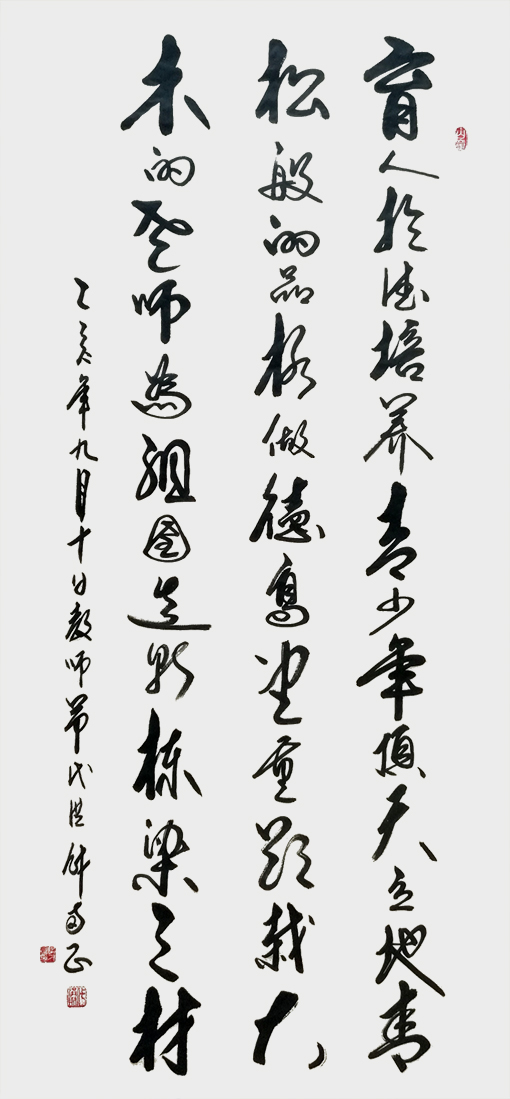 育人於德培養青少年頂天立地青
松般的品格做德高望重栽大
木的師為祖國造就棟梁之材
己亥年九月十日教師節